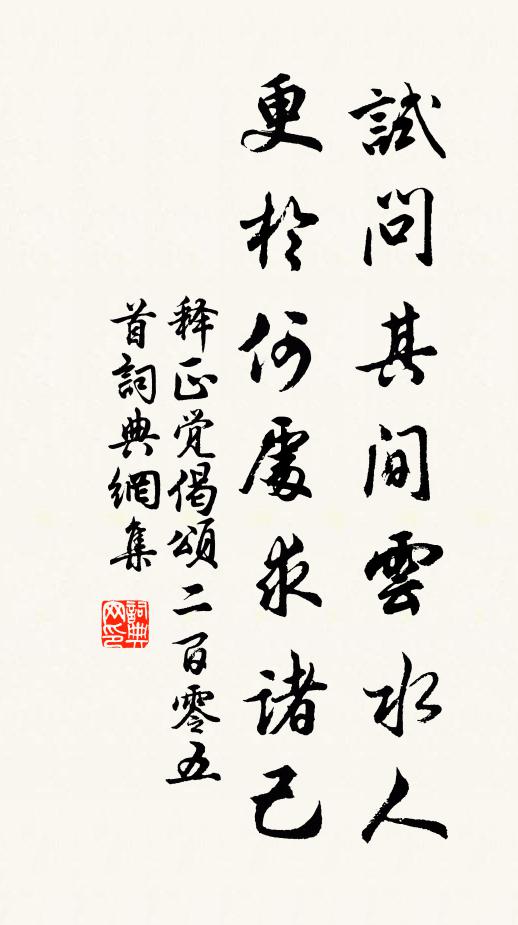 試問其間雲水人
更於何處求諸己
释正觉偈頌二百零五
首詞典網集
詞典网印